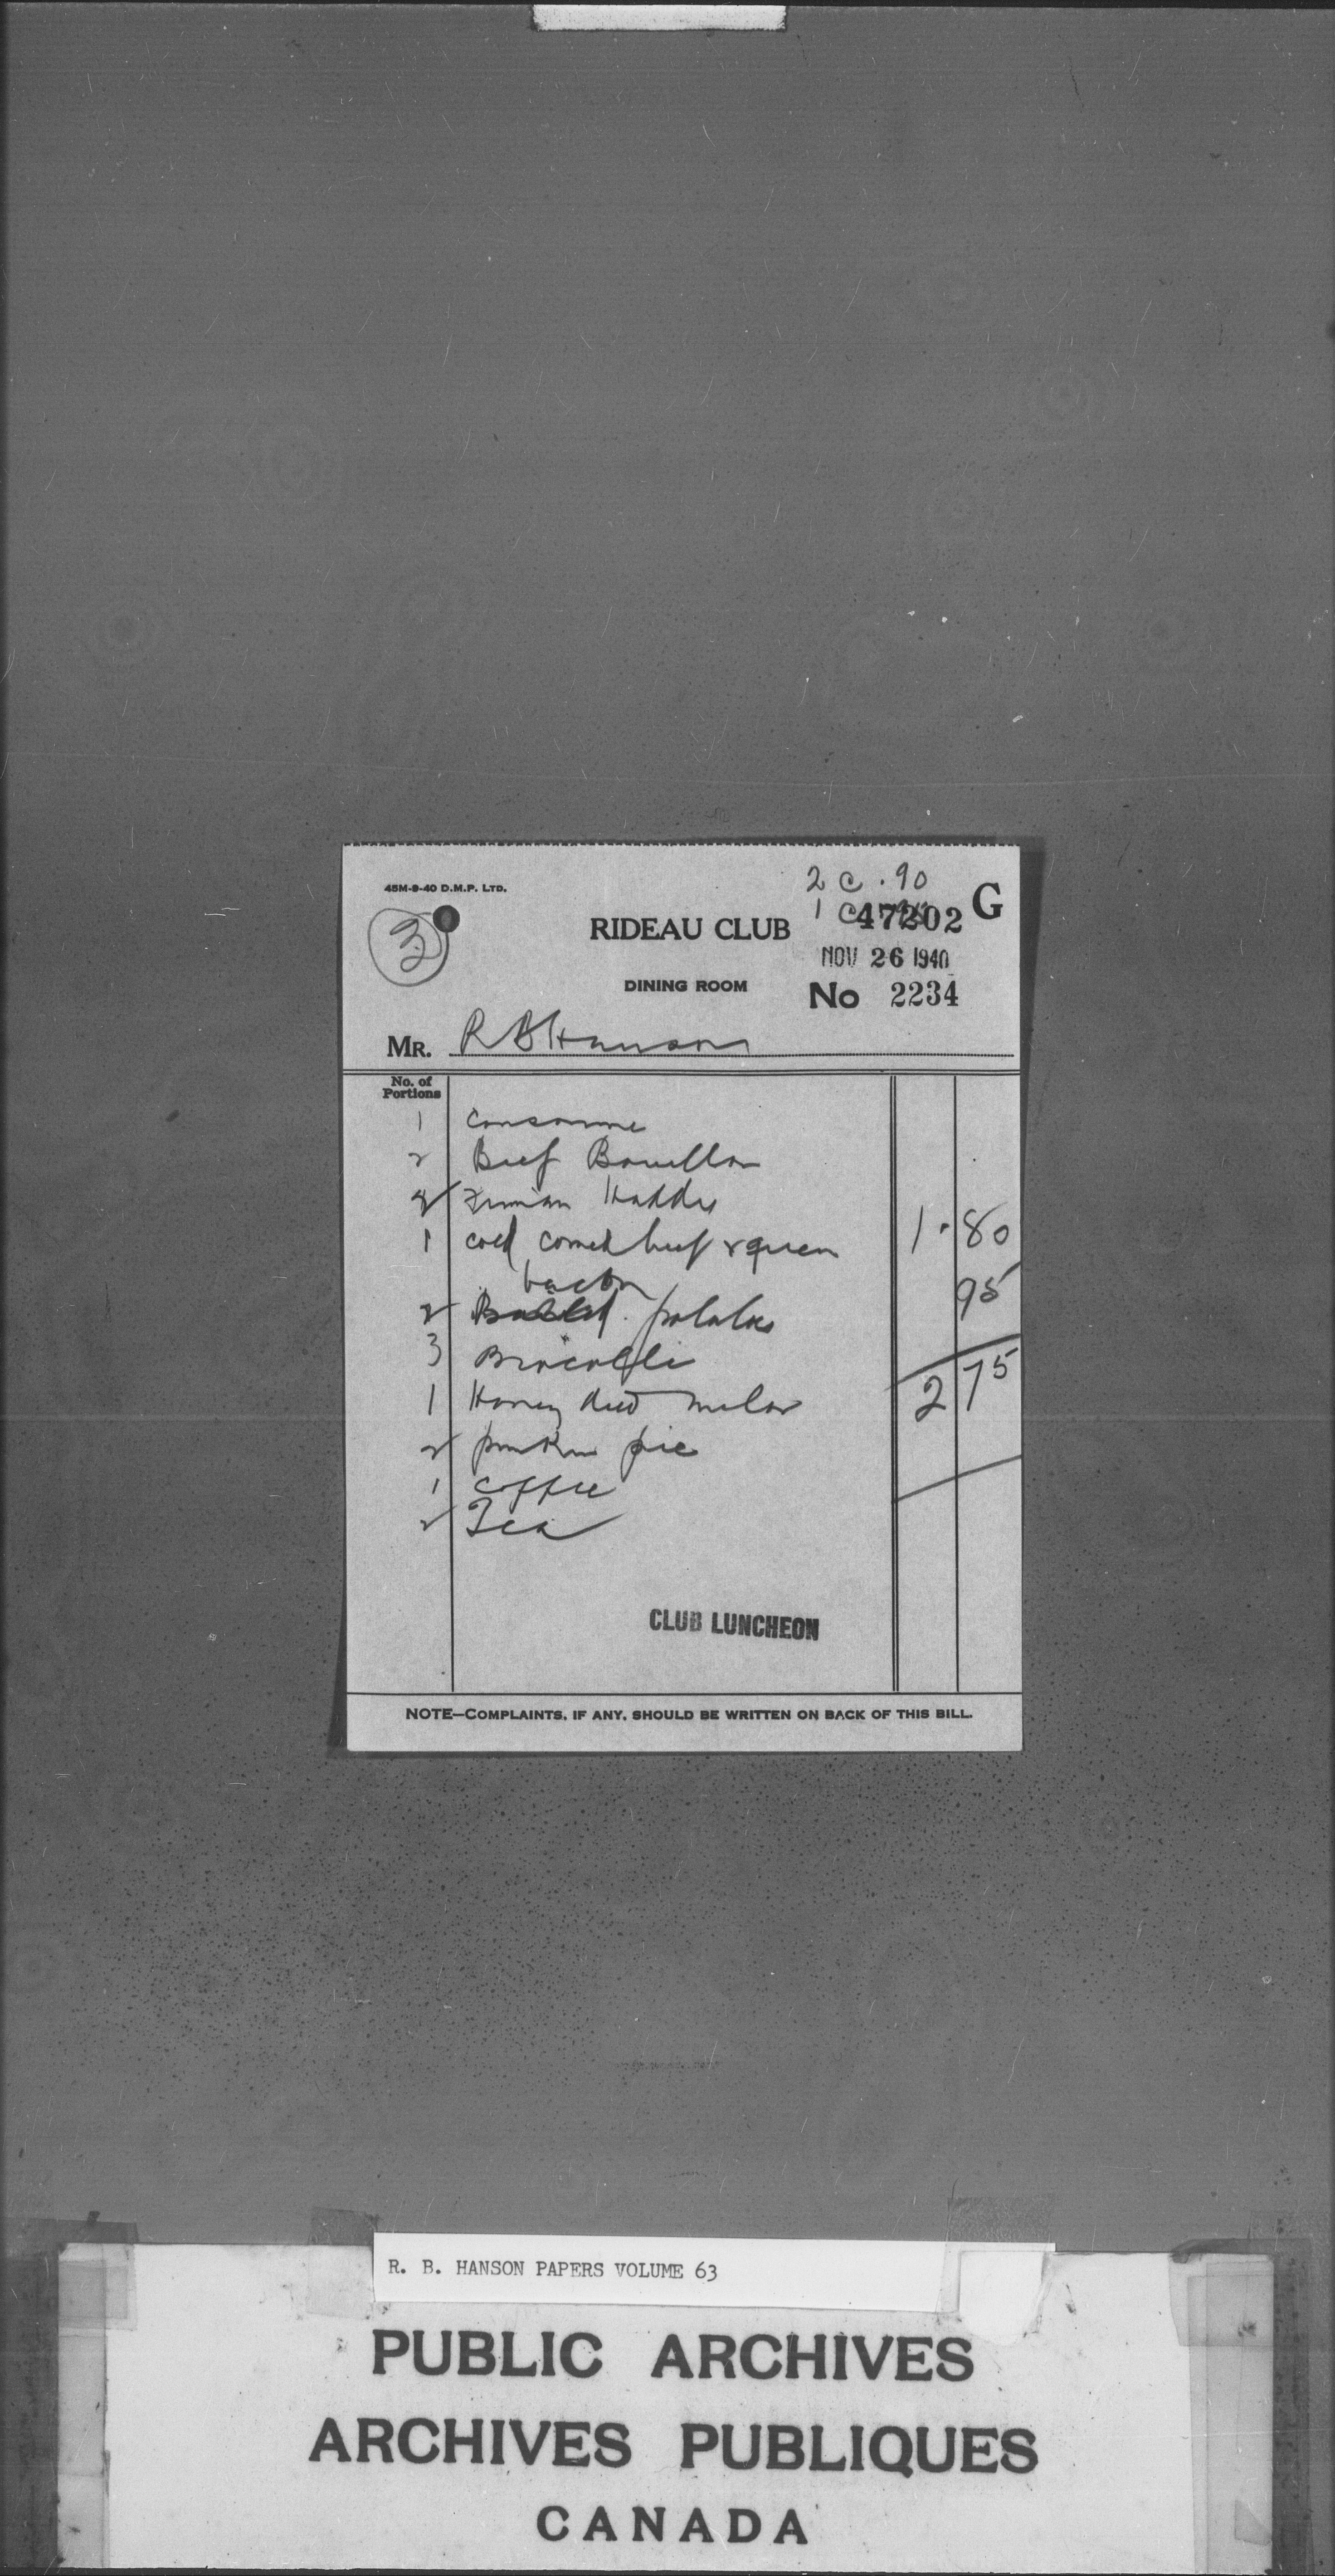 45M-9-40 D.M.P. LTD.
2 C .90
1 C 47202 G
3
RIDEAU CLUB
NOV 26 1940
DINING ROOM
No 2234
MR. R B Hanson
No. of
Portions
1 Consomme
2 Beef Bouillon
2 Finnian Haddie
1 cold corned beef & green 1.80
bacon 95
2 potatoes
3 Brocolli 2 75
1 Honey dew melon
2 pie
1 Coffee
2 Tea
CLUB LUNCHEON
NOTE—COMPLAINTS, IF ANY, SHOULD BE WRITTEN ON BACK OF THIS BILL.
R. B. HANSON PAPERS VOLUME 63
PUBLIC ARCHIVES
ARCHIVES PUBLIQUES
CANADA